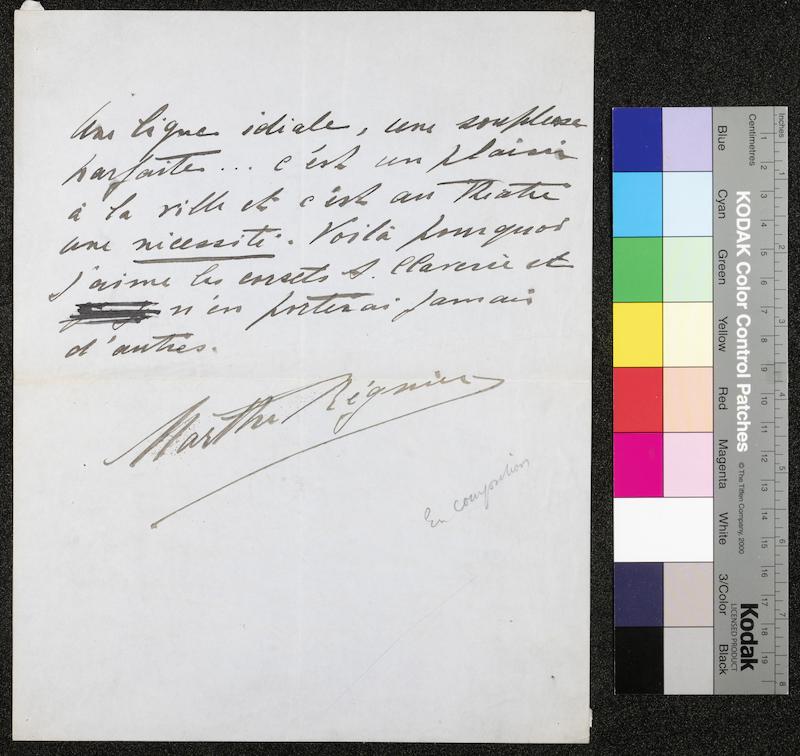 Une ligne idéale, une souplesse
parfaite... c'est un plaisir
à la ville et c'est au Théâtre
une nécessité. Voilà pourquoi
j'aime les corsets A. Claverie et
n'en porterai jamais
d'autres.
Marthe Régnier
En composition
Inches
Centimetres
1 2 3 4 5 6 7 8
1 2 3 4 5 6 7 8 9 10 11 12 13 14 15 16 17 18 19
KODAK Color Control Patches
© The Tiffen Company, 2000
Kodak
LICENSED PRODUCT
Blue
Cyan
Green
Yellow
Red
Magenta
White
3/Color
Black